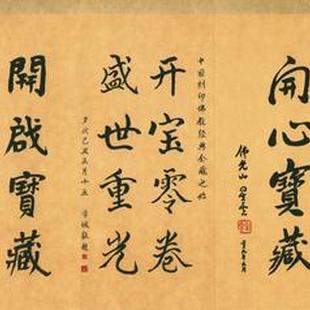 开心寶藏
佛光山 星雲
中國刻印佛教經典全藏之始
开宝零卷
盛世重光
岁次己丑五月十五
開啟寶藏